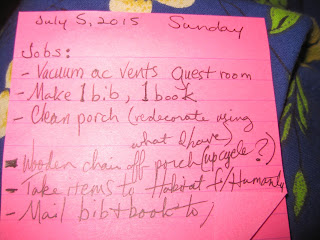 July 5, 2015 Sunday
Jobs:
- Vacuum ac vents guest room
- Make 1 bib, 1 book
- Clean porch (redecorate using
what I have)
- Wooden chair off porch (upcycle?)
- Take items to Habitat f/Humanity
- Mail bib + book to